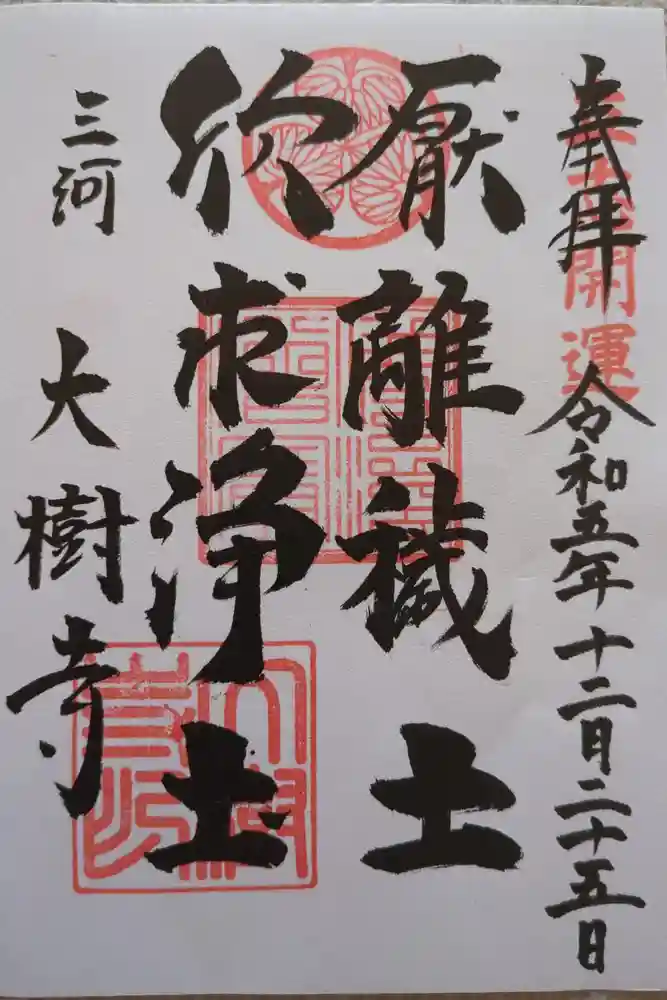 奉拝
開運
令和五年十二月二十五日
厭離穢土
欣求浄土
三河 大樹寺